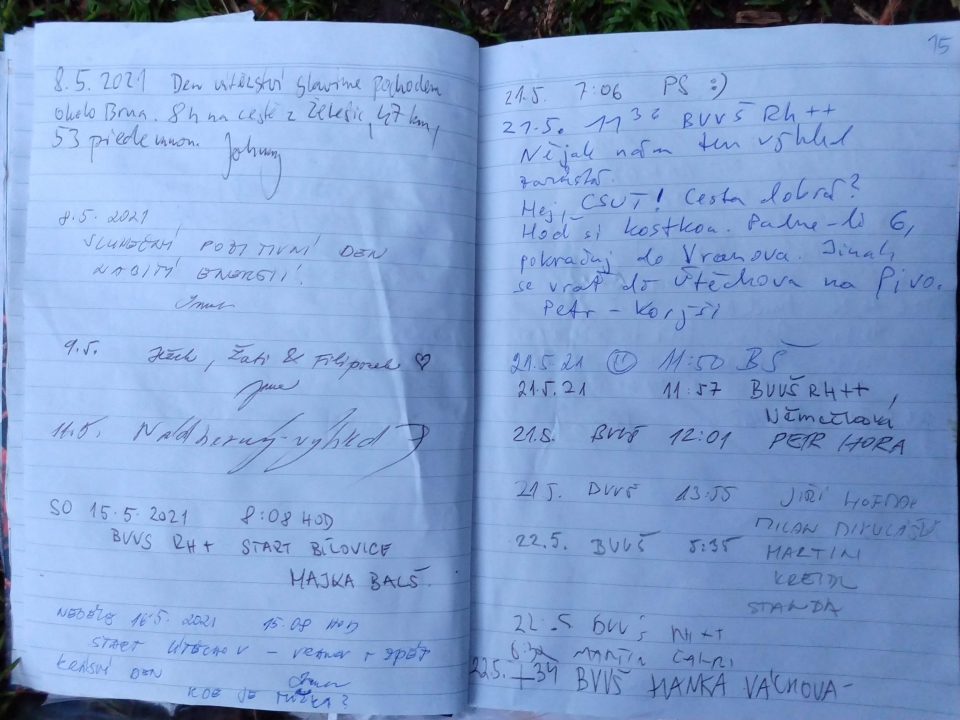 8.5.2021 Den vítězství slavíme pochodem
okolo Brna. 8h na cestě z Želešic, 47 km,
53 přede mnou. Johnny
8.5.2021
SLUNEČNÍ POZITIVNÍ DEN
NABITÝ ENERGIÍ!
9.5. Ježek, Žati & Filipínek ♡
11.5. Nádherný výhled
SO 15.5.2021 8:08 HOD
BVVŠ RH+ START BÍLOVICE
MAJKA BALŠ.
NEDĚLE 16.5.2021 15.08 HOD
START ÚTĚCHOV – VRANOV + ZPĚT
KRÁSNÝ DEN
KDE JE TUŽKA?
15
21.5. 7:06 PS :)
21.5. 11 36 BVVŠ Rh++
Nějak nám ten výhled
zarůstá.
Hej, CSUT! Cesta dobrá?
Hoď si kostkou. Padne-li 6,
pokračuj do Vranova. Jinak
se vrať do Útěchova na Pivo.
Petr –
21.5.21 11:50 BŠ
21.5.21 11:57 BVVŠ RH++,
Němečková
21.5. BVVŠ 12:01 PETR HORA
21.5. BVVŠ 13:55 JIŘÍ
MILAN MIKULÁŠ
22.5. BVVŠ 5:35 MARTIN
KREIDL
STANDA
22.5 BVVŠ RH++
MARTIN
22.5. 7 34 BVVŠ HANKA VÁCHOVÁ